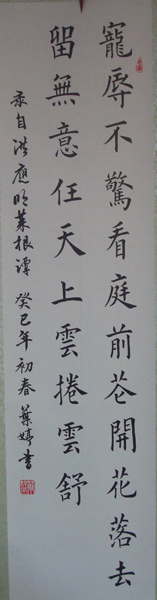 寵辱不驚看庭前花開花落去
留無意任天上雲捲雲舒
录自洪應明菜根譚 癸巳年初春 葉婷書